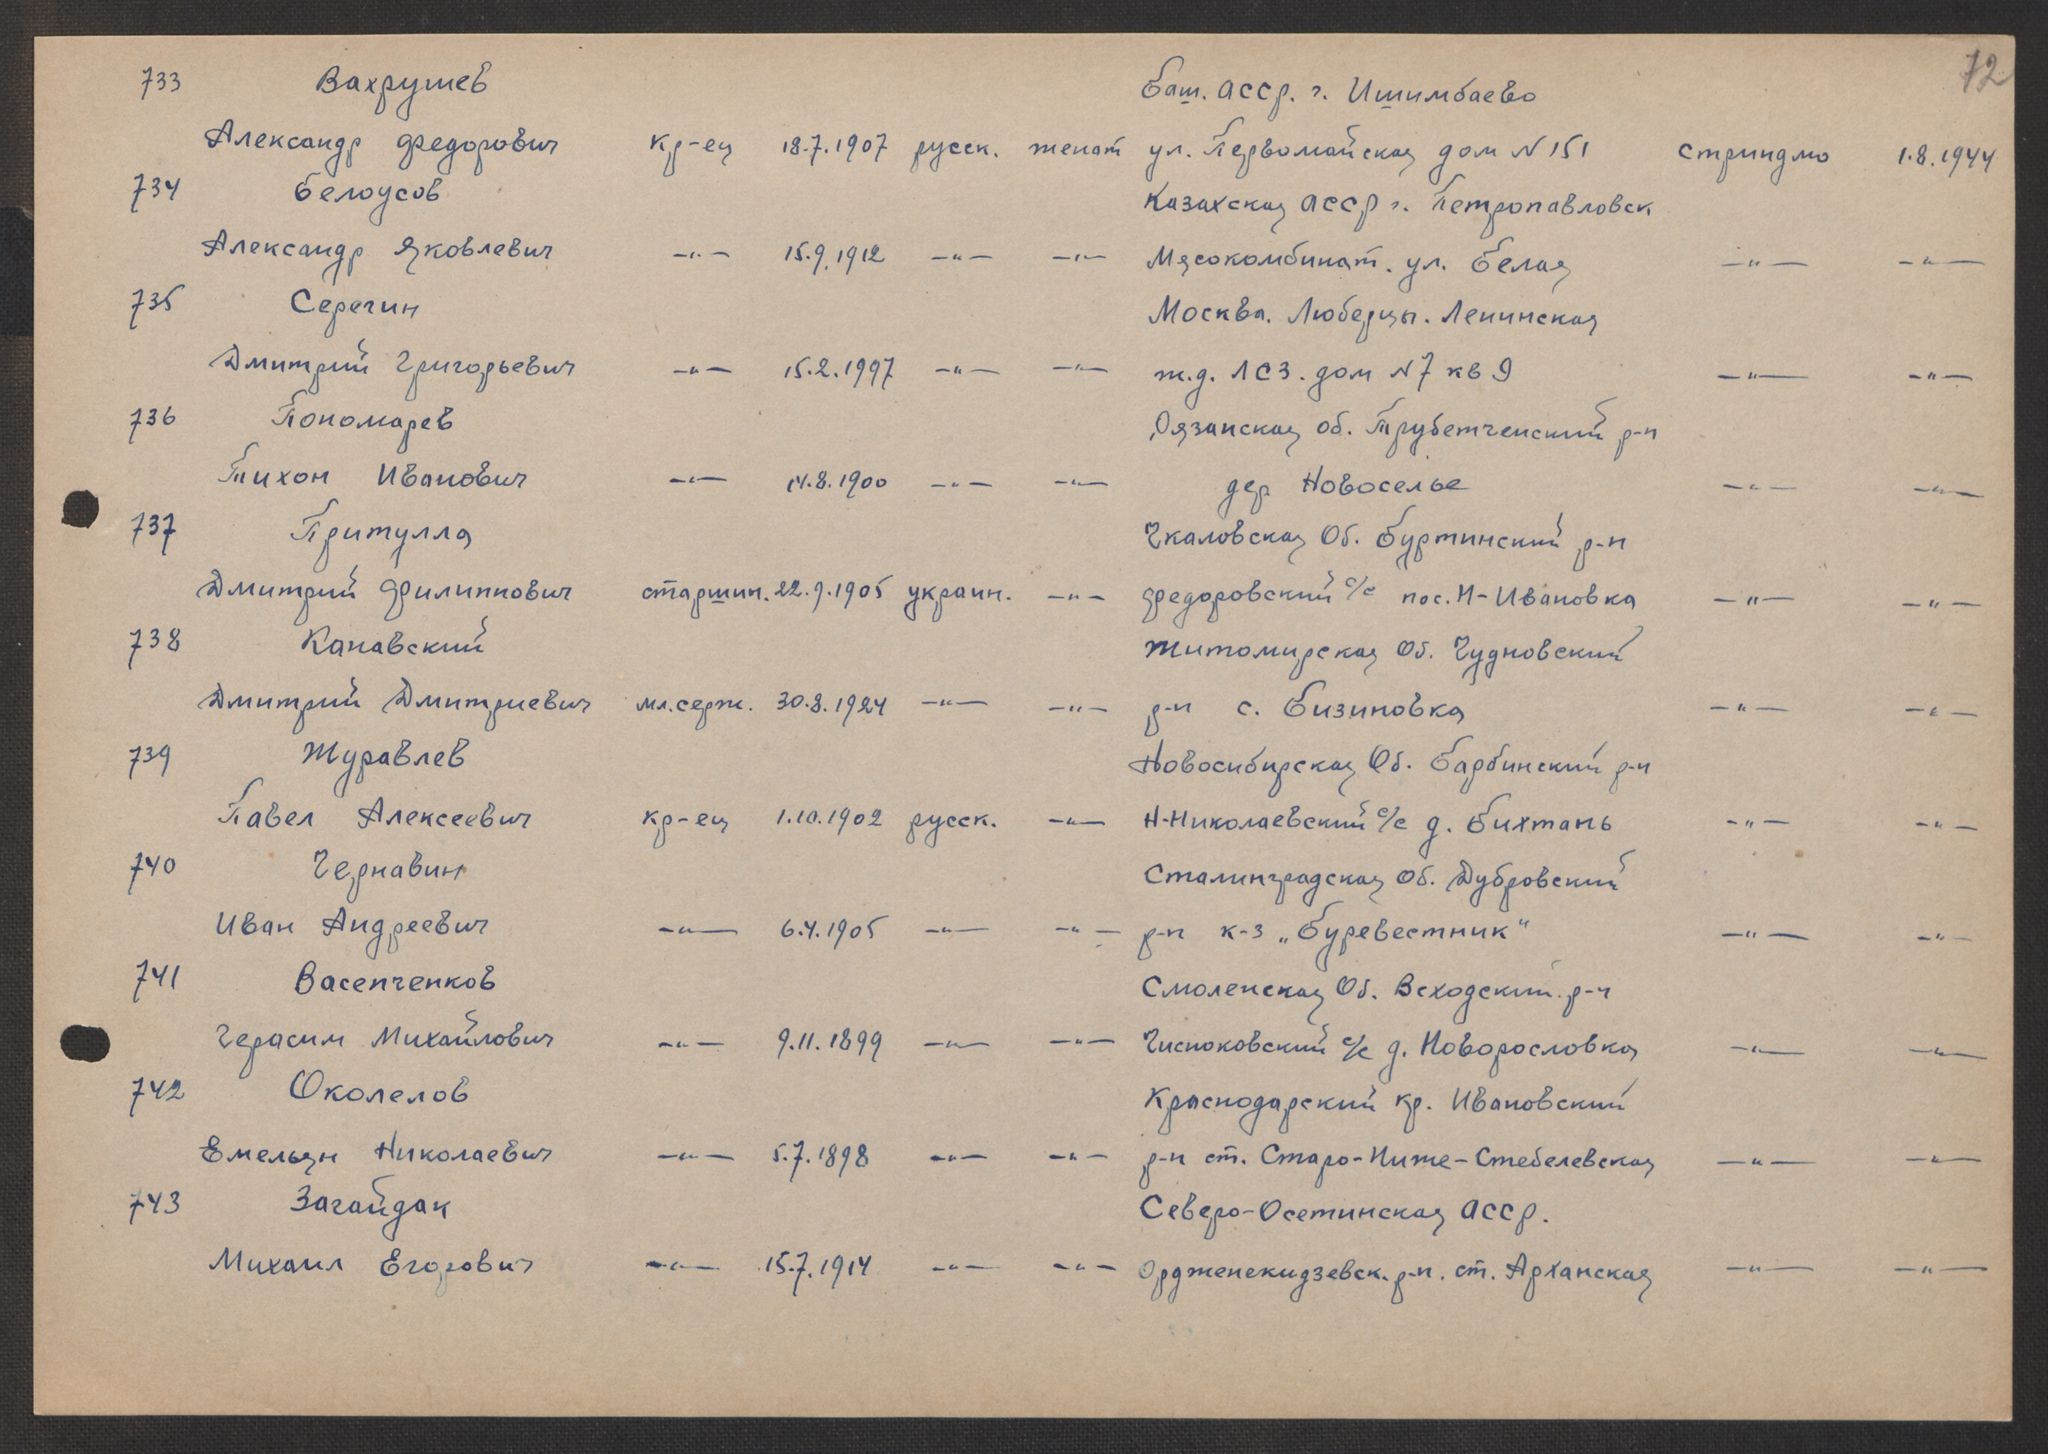 72
733 Вахрушев Баш. АССР. г. Ишимбаево
Александр Федорович кр-ец 18.7.1907 русск. женат ул. Первомайская дом N 151 Стриндмо 1.8.1944
734 Белоусов Казахская АССР г. Петропавловск
Александр Яковлевич —"— 15.9.1912 —"— —"— Мясокомбинат. ул. Белая —"— —"—
735 Серегин Москва. Люберцы. Ленинская
Дмитрий Григорьевич —"— 15.2.1997 —"— —"— ж.д. ЛСЗ. дом N7 кв 9 —"— —"—
736 Пономарев Рязанская об. Трубетченский р-н
Тихон Иванович —"— 14.8.1900 —"— —"— дер Новоселье —"— —"—
737 Притулла Чкаловская Об. Буртинский р-н
Дмитрий Филиппович старшин. 22.9.1905 украин. —"— Федоровский с/с пос. Н-Ивановка —"— —"—
738 Канавский Житомирская Об. Чудновский
Дмитрий Дмитриевич мл.серж. 30.8.1924 —"— —"— р-н с. Бизиновка —"— —"—
739 Журавлев Новосибирская Об. Барбинский р-н
Павел Алексеевич кр-ец 1.10.1902 русск. —"— Н-Николаевский с/с д. Бихтань —"— —"—
740 Чернавин Сталинградская Об. Дубровский
Иван Андреевич —"— 6.4.1905 —"— —"— р-н к-з „Буревестник" —"— —"—
741 Васенченков Смоленская Об. Всходский р-н
Герасим Михайлович —"— 9.11.1899 —"— —"— с/с д. Новорословка —"— —"—
742 Околелов Краснодарский кр. Ивановский
Емельян Николаевич —"— 5.7.1898 —"— —"— р-н ст. Старо-Ниже-Стебелевская —"— —"—
743 Загайдак Северо-Осетинская АССР.
Михаил Егорович —"— 15.7.1914 —"— —"— Орджненекидзевск. р-н. ст. Арханская —"— —"—